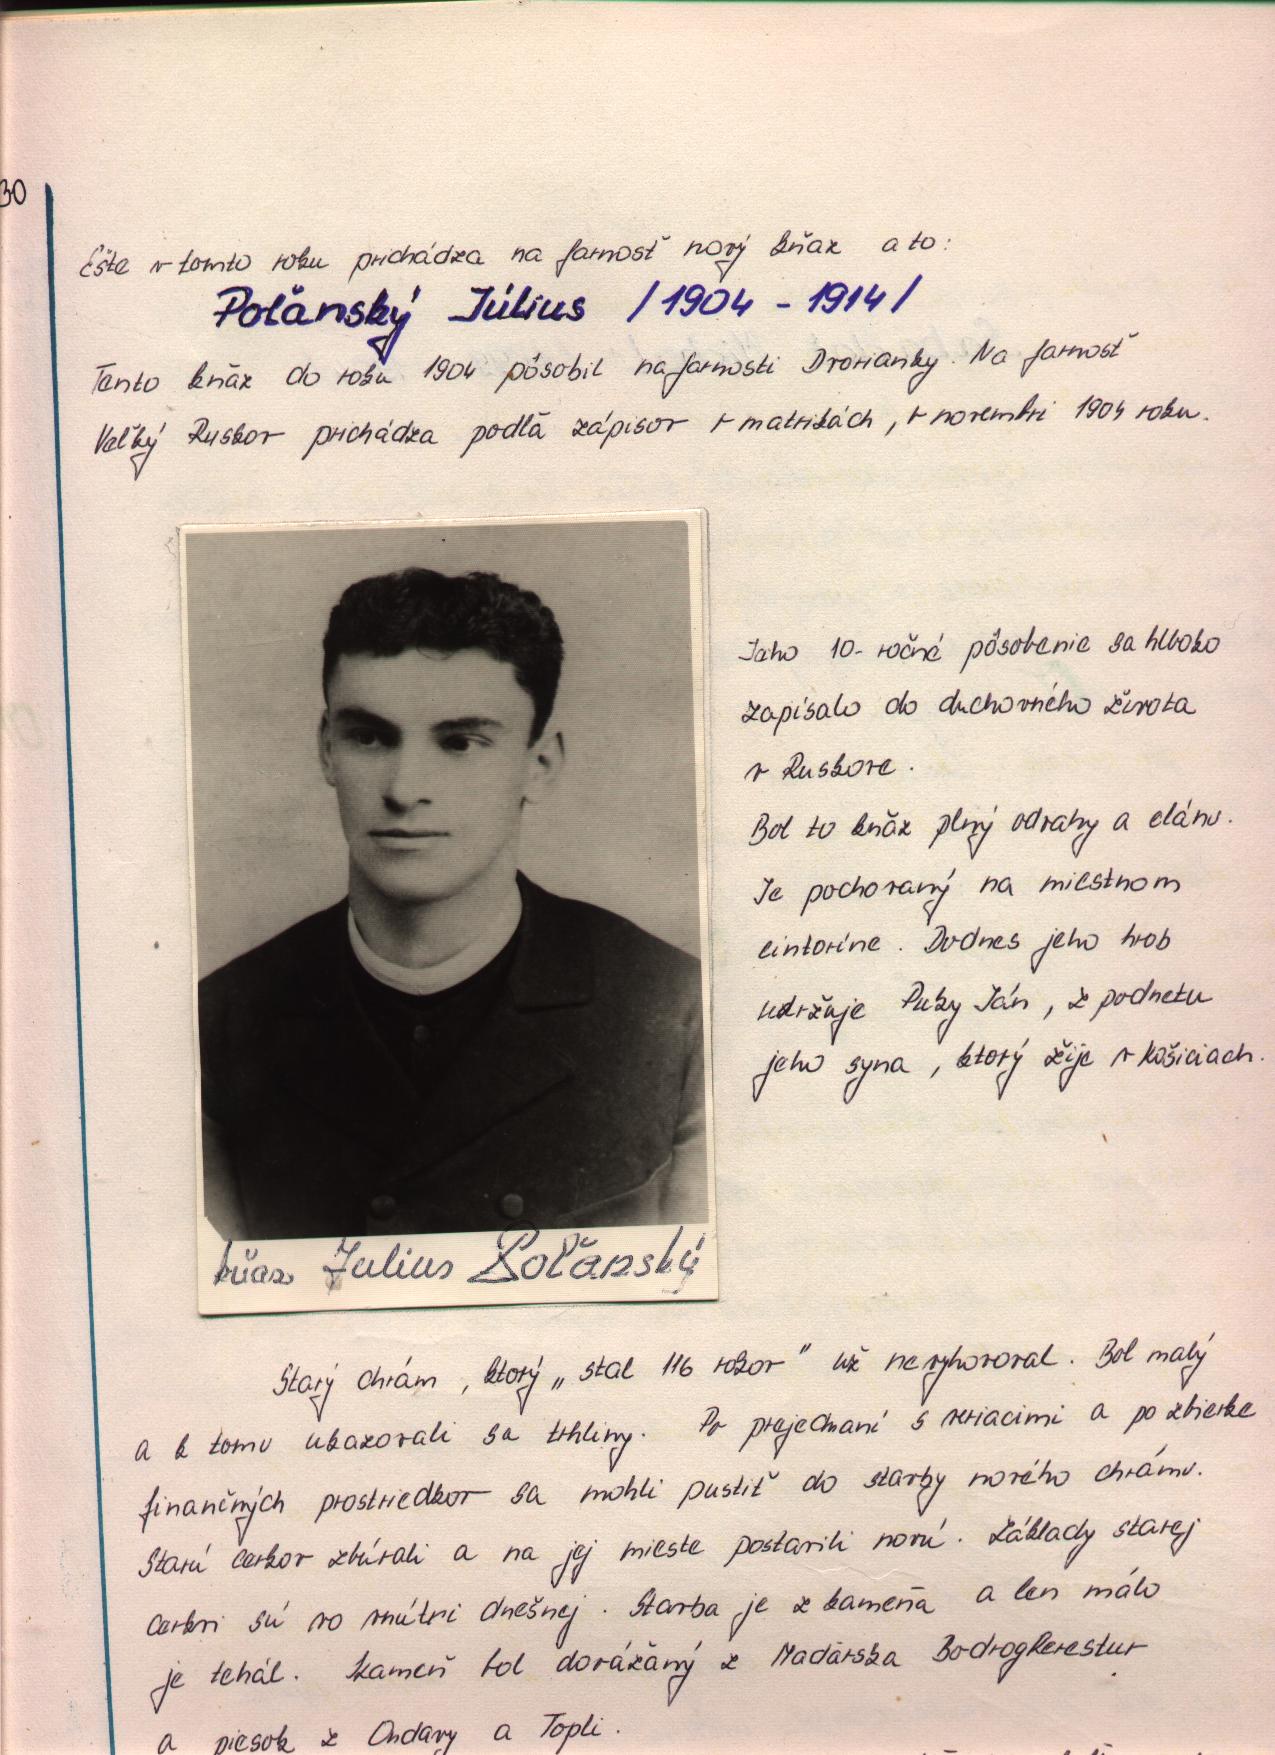 30
Ešte v tomto roku prichádza na farnosť nový kňaz a to:
Poťanský Július /1904 - 1914/
Tento kňaz do roku 1904 pôsobil na farnosti Dvorianky. Na farnosť
Veľký Ruskov prichádza podľa zápisov v matrikách, v novembri 1904 roku.
Jeho 10-ročné pôsobenie sa hlboko
zapísalo do duchovného života
v Ruskove.
Bol to kňaz plný odvahy a elánu.
Je pochovaný na miestnom
cintoríne. Dodnes jeho hrob
udržuje Puky Ján, z podnetu
jeho syna, ktorý žije v Košiciach.
kňaz Julius Poťanský
Starý chrám, ktorý „stal 116 rokov" už nevyhovoval. Bol malý
a k tomu ukazovali sa trhliny. Po prejednaní s veriacimi a po zbierke
finančných prostriedkov sa mohli pustiť do stavby nového chrámu.
Starú cerkov zbúrali a na jej mieste postavili novú. Základy starej
cerkvi sú vo vnútri dnešnej. Stavba je z kameňa a len málo
je tehál. Kameň bol dovážaný z Maďarska Bodrogkerestur
a piesok z Ondavy a Topli.